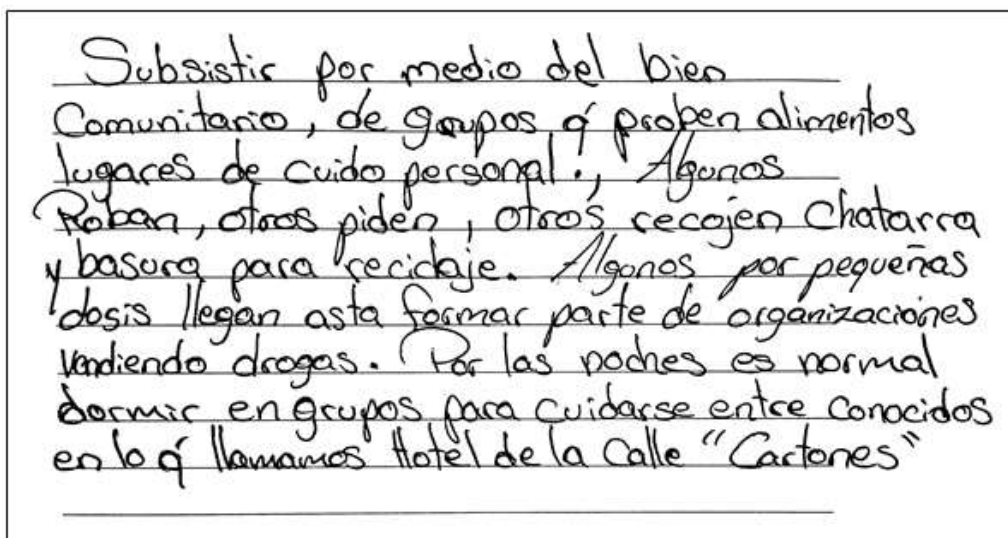 Subsistir por medio del bien
Comunitario, de grupos q́ proben alimentos
lugares de cuido personal., Algunos
Roban, otros piden, otros recojen Chatarra
y basura para reciclaje. Algunos por pequeñas
dosis llegan asta formar parte de organizaciónes
vendiendo drogas. Por las noches es normal
dormir en grupos para cuidarse entre Conocidos
en lo q́ llamamos Hotel de la Calle "Cartones"